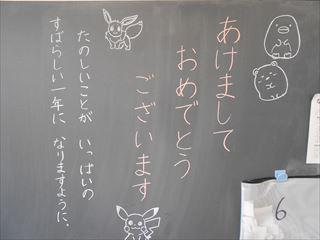 あけまして
おめでとう
ございます
たのしいことが いっぱいの
すばらしい一年に なりますように。
6